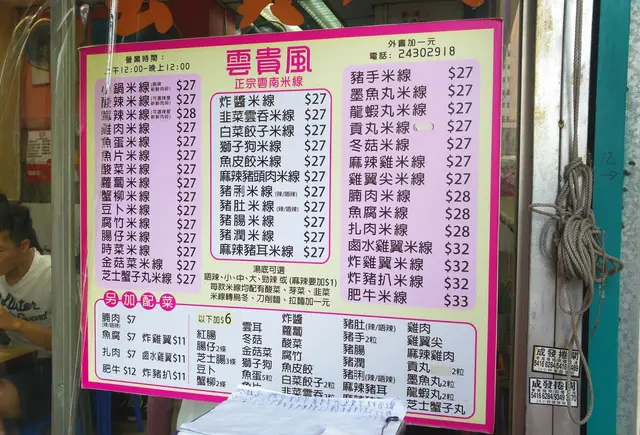 營業時間：
上午12:00-晚上12:00
雲貴風
正宗雲南米線
外賣加一元
電話：24302918
小鍋米線 $27
酸辣米線 $27
$28
雞肉米線 $27
魚蛋米線 $27
魚片米線 $27
酸菜米線 $27
蘿蔔米線 $27
蟹柳米線 $27
豆卜米線 $27
腐竹米線 $27
腸仔米線 $27
時菜米線 $27
金菇菜米線 $27
芝士蟹子丸米線 $27
炸醬米線 $27
韭菜雲吞米線 $27
白菜餃子米線 $27
獅子狗米線 $27
魚皮餃米線 $27
麻辣豬頭肉米線 $27
豬脷米線(辣/唔辣) $27
豬肚米線(辣/唔辣) $27
豬腸米線 $27
豬潤米線 $27
麻辣豬耳米線 $27
豬手米線 $27
墨魚丸米線 $27
龍蝦丸米線 $27
貢丸米線 $27
冬菇米線 $27
麻辣雞米線 $27
雞翼尖米線 $27
腩肉米線 $28
魚腐米線 $28
扎肉米線 $28
鹵水雞翼米線 $32
炸雞翼米線 $32
炸豬扒米線 $32
肥牛米線 $33
湯底可選
唔辣、小、中、大、勁辣 或 (麻辣要加$1)
每款米線均配有酸菜、芽菜、韭菜
米線轉烏冬、刀削麵、拉麵加一元
另加配菜
腩肉 $7
(辣/唔辣)
魚腐 $7 炸雞翼$11
扎肉 $7 鹵水雞翼$11
肥牛 $12 炸豬扒$11
以下加$6
紅腸
腸仔2條
芝士腸3條
豆卜
蟹柳2條
雲耳
冬菇
金菇菜
獅子狗
魚蛋5粒
魚片
炸醬
蘿蔔
酸菜
腐竹
魚皮餃
白菜餃子2粒
韭菜雲吞2粒
豬肚(辣/唔辣)
豬手2粒
豬腸
豬潤
豬脷(辣/唔辣)
麻辣豬耳
麻辣豬頭肉
雞肉
雞翼尖
麻辣雞肉
貢丸2粒
墨魚丸2粒
龍蝦丸2粒
芝士蟹子丸